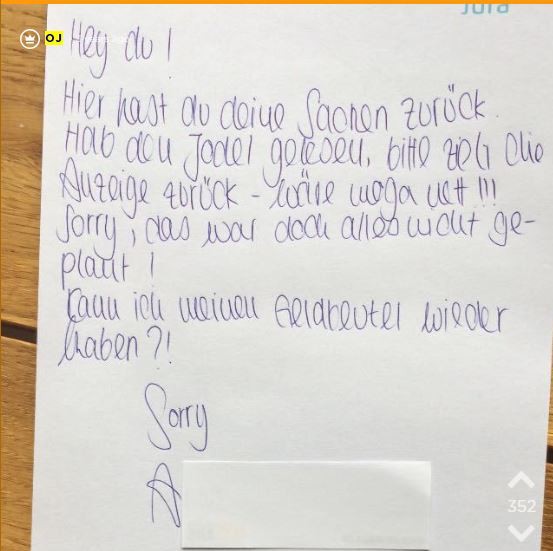 Jura
OJ
Hey du!
Hier hast du deine Sachen zurück.
Hab den Jodel gelesen, bitte zieh die
Anzeige zurück - wäre mega nett!!!
Sorry, das war doch alles nicht ge-
plant!
Kann ich meinen Geldbeutel wieder
haben?!
Sorry
A
352